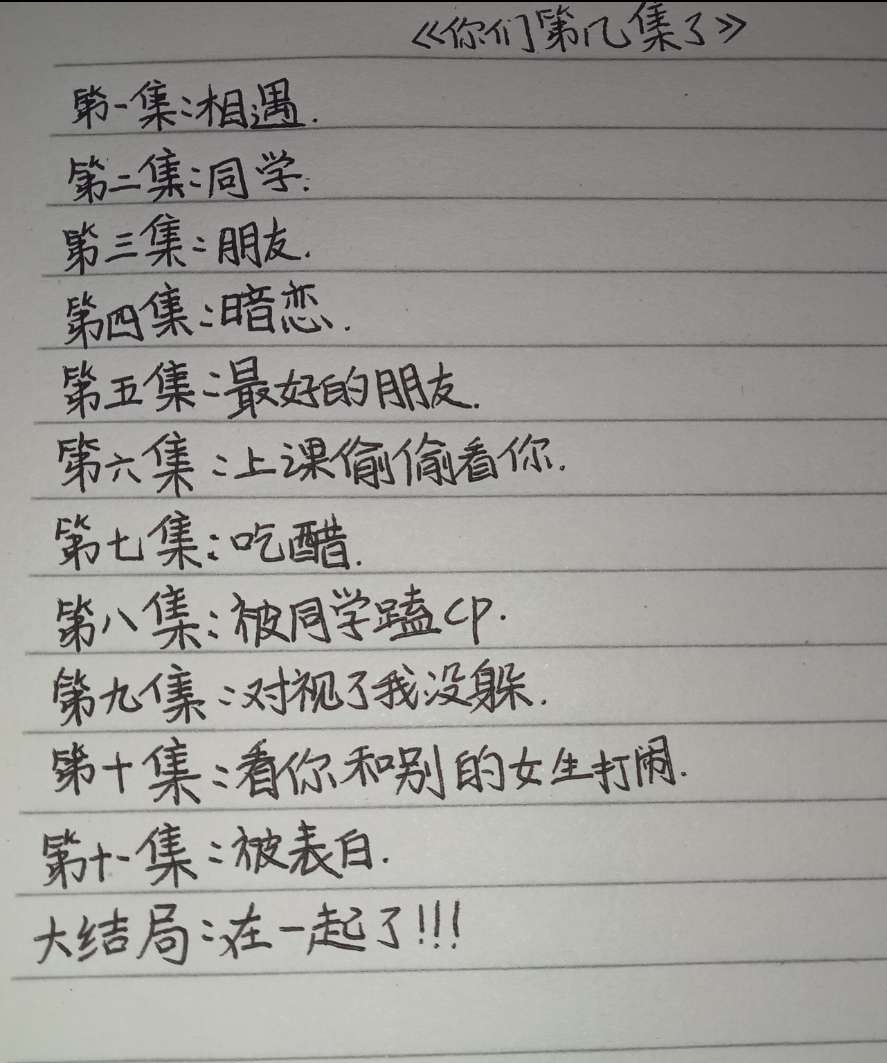 《你们第几集了》
第一集:相遇.
第二集:同学.
第三集:朋友.
第四集:暗恋.
第五集:最好的朋友.
第六集:上课偷偷看你.
第七集:吃醋.
第八集:被同学磕cp.
第九集:对视了我没躲.
第十集:看你和别的女生打闹.
第十一集:被表白.
大结局:在一起了!!!